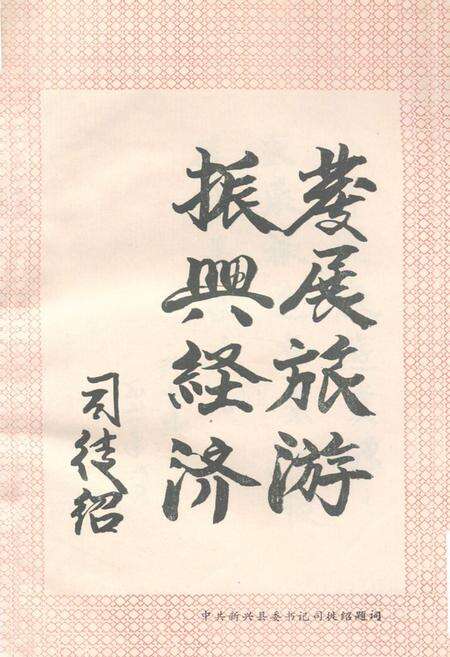 發展旅游
振興経济
司徒绍
中共新兴县委书记司徒绍题词